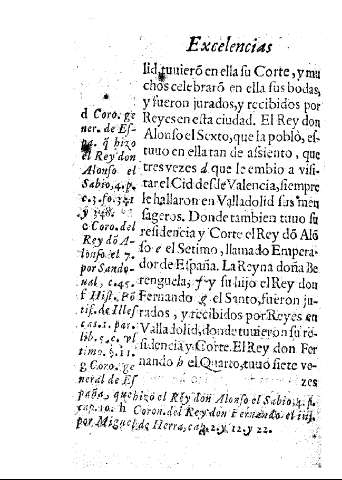 Excelencias
lid, tuuierõ en ella su Corte, y mu
chos celebrarõ en ella sus bodas,
y fueron jurados, y recibidos por
Reyes en esta ciudad. El Rey don
Alonso el Sexto, que la poblò, es-
tuuo en ella tan de assiento, que
tres vezes d que le embio a visi-
tar el Cid desde Valencia, siempre
le hallaron en Valladolid sus men
sageros. Donde tambien tuuo su
residencia y Corte el Rey dõ Alõ
so e el Setimo, llamado Empera-
dor de España. La Reyna doña Be
renguela, f y su hijo el Rey don
Fernando g el Santo, fueron ju-
rados, y recibidos por Reyes en
Valladolid, donde tuuieron su re-
sidencia y Corte. El Rey don Fer
nando h el Quarto, tuuo siete ve-
zes
d Coro. ge
ner. de Es-
pa. q̃ hizo
el Rey don
Alonso el
Sabio, 4. p.
c. 3. fo. 341
y 348.
e Coro. del
Rey dõ A-
lonso el 7.
por Sando-
ual, c. 45.
f Hist. Põ
tif. de Illes
cas. 1. par.
lib. 5. c.
timo. §. 11.
g Coro. ge
neral de Es
paña, que hizo el Rey dõn Alonso el Sabio, 4. p.
cap. 10. h Coron. del Rey don Fernando el iiij.
por Miguel de Herra, cap. 2. y 12. y 22.